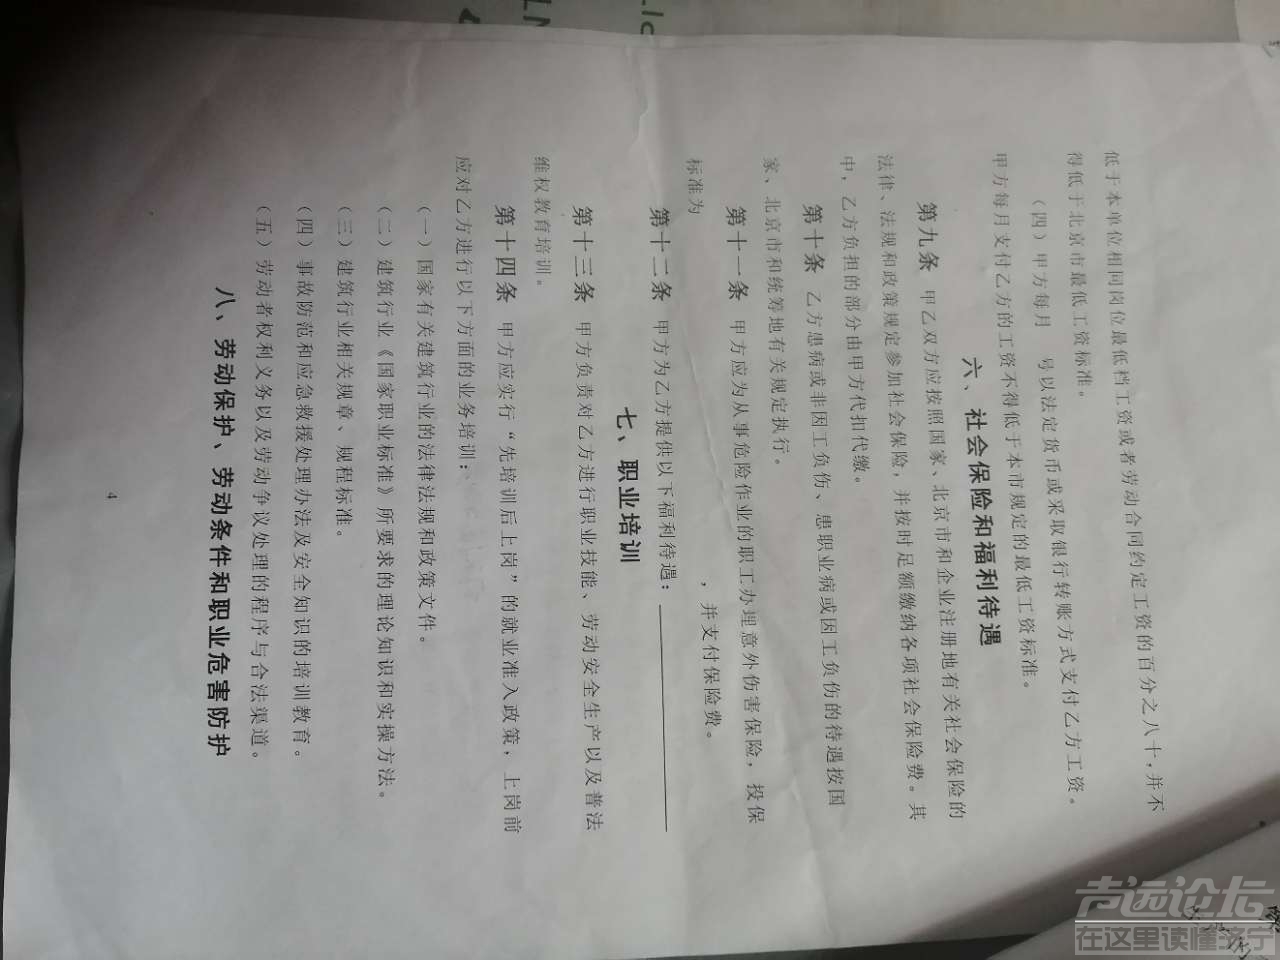 低于本单位相同岗位最低档工资或者劳动合同约定工资的百分之八十，并不
得低于北京市最低工资标准。
（四）甲方每月 号以法定货币或采取银行转账方式支付乙方工资。
甲方每月支付乙方的工资不得低于本市规定的最低工资标准。
六、社会保险和福利待遇
第九条 甲乙双方应按照国家、北京市和企业注册地有关社会保险的
法律、法规和政策规定参加社会保险，并按时足额缴纳各项社会保险费。其
中，乙方负担的部分由甲方代扣代缴。
第十条 乙方患病或非因工负伤、患职业病或因工负伤的待遇按国
家、北京市和统筹地有关规定执行。
第十一条 甲方应为从事危险作业的职工办理意外伤害保险，投保
标准为 ，并支付保险费。
第十二条 甲方为乙方提供以下福利待遇：
七、职业培训
第十三条 甲方负责对乙方进行职业技能、劳动安全生产以及普法
维权教育培训。
第十四条 甲方应实行“先培训后上岗”的就业准入政策，上岗前
应对乙方进行以下方面的业务培训：
（一）国家有关建筑行业的法律法规和政策文件。
（二）建筑行业《国家职业标准》所要求的理论知识和实操方法。
（三）建筑行业相关规章、规程标准。
（四）事故防范和应急救援处理办法及安全知识的培训教育。
（五）劳动者权利义务以及劳动争议处理的程序与合法渠道。
八、劳动保护、劳动条件和职业危害防护
4
声远论坛
在这里读懂济宁